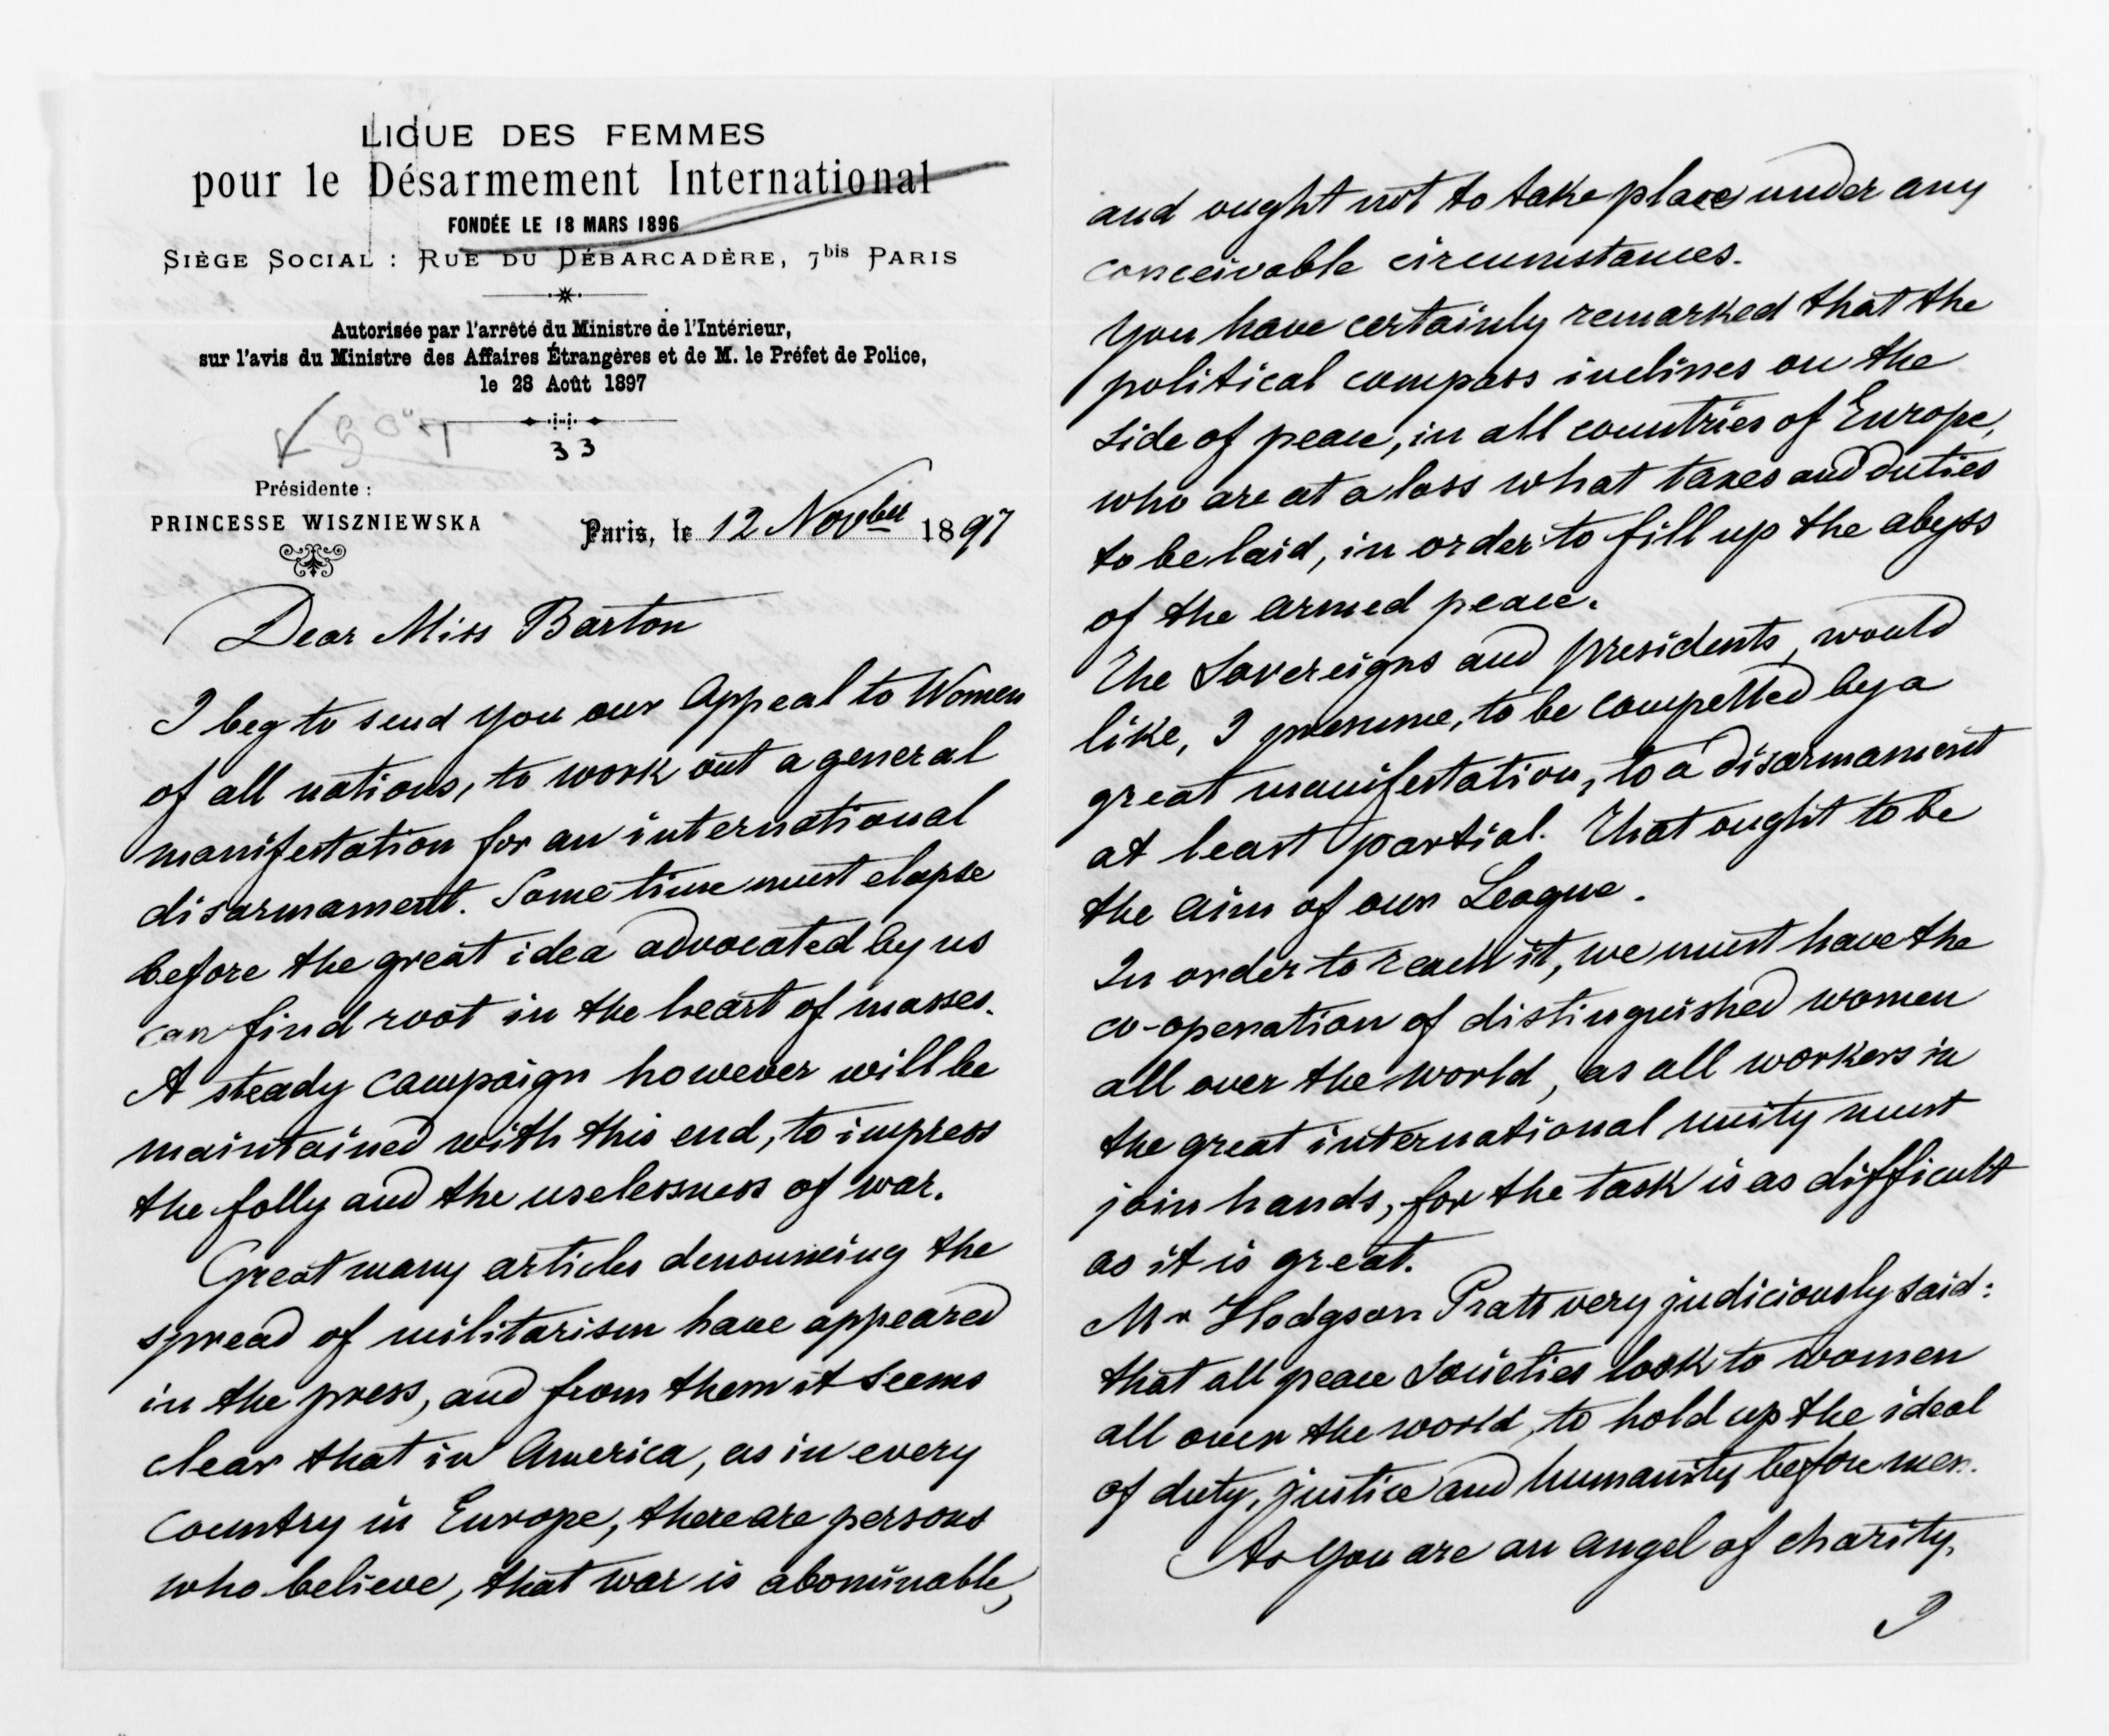 LIGUE DES FEMMES
pour le Désarmement International
FONDÉE LE 18 MARS 1896
SIÈGE SOCIAL : RUE DU DÉBARCADÈRE, 7bis PARIS
Autorisée par l'arrêté du Ministre de l'Intérieur,
sur l'avis du Ministre des Affaires Étrangères et de M. le Préfet de Police,
le 28 Août 1897
33
Présidente :
PRINCESSE WISZNIEWSKA
Paris, le 12 Novber 1897
Dear Miss Barton
I beg to send you our Appeal to Women
of all nations, to work out a general
manifestation for an international
disarmament. Some time must elapse
before the great idea advocated by us
can find root in the heart of masses.
A steady campaign however will be
maintained with this end, to impress
the folly and the uselessness of war.
Great many articles denouncing the
spread of militarism have appeared
in the press, and from them it seems
clear that in America, as in every
country in Europe, there are persons
who believe, that war is abominable,
and ought not to take place under any
conceivable circumstances.
You have certainly remarked that the
political compass inclines on the
side of peace, in all countries of Europe,
who are at a loss what taxes and duties
to be laid, in order to fill up the abyss
of the armed peace.
The Sovereigns and presidents, would
like, I presume, to be compelled by a
great manifestation, to a disarmament
at least partial. That ought to be
the aim of our League.
In order to reach it, we must have the
co-operation of distinguished women
all over the world, as all workers in
the great international unity must
join hands, for the task is as difficult
as it is great.
Mr Hodgson Pratt very judiciously said:
that all peace Societies look to women
all over the world, to hold up the ideal
of duty, justice and humanity before men.
As you are an angel of charity,
I